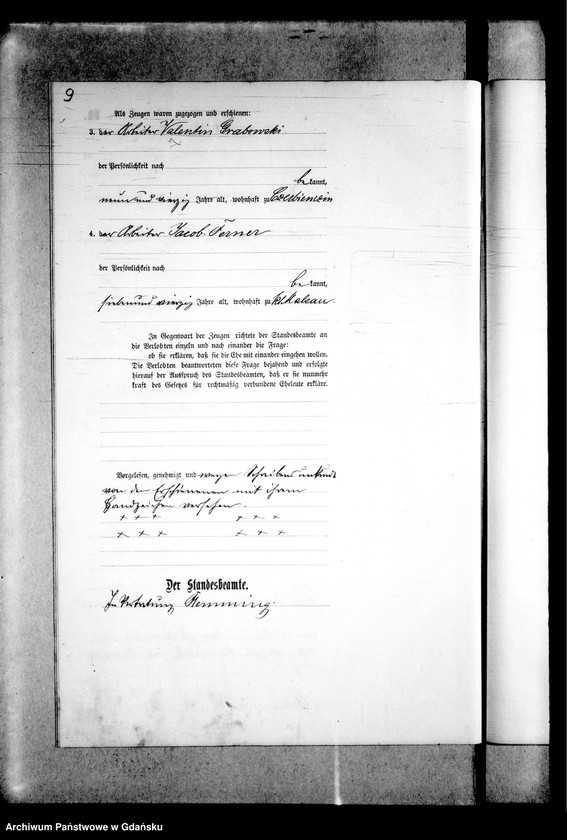 9
Als Zeugen waren zugezogen und erschienen:
3. der Arbeiter Valentin Grabowski
der Persönlichkeit nach
be kannt,
neun und vierzig Jahre alt, wohnhaft zu
4. der Arbeiter Jacob
der Persönlichkeit nach
be kannt,
sieben und vierzig Jahre alt, wohnhaft zu Kl. Malsau.
In Gegenwart der Zeugen richtete der Standesbeamte an
die Verlobten einzeln und nach einander die Frage:
ob sie erklären, daß sie die Ehe mit einander eingehen wollen.
Die Verlobten beantworteten diese Frage bejahend und erfolgte
hierauf der Ausspruch des Standesbeamten, daß er sie nunmehr
kraft des Gesetzes für rechtmäßig verbundene Eheleute erkläre.
Vorgelesen, genehmigt und wegen Schreibensunkunde
von den Erschienenen mit ihrem
Handzeichen versehen.
+ + + + + +
+ + + + + +
Der Standesbeamte.
In Vertretung Hemming.
Archiwum Państwowe w Gdańsku